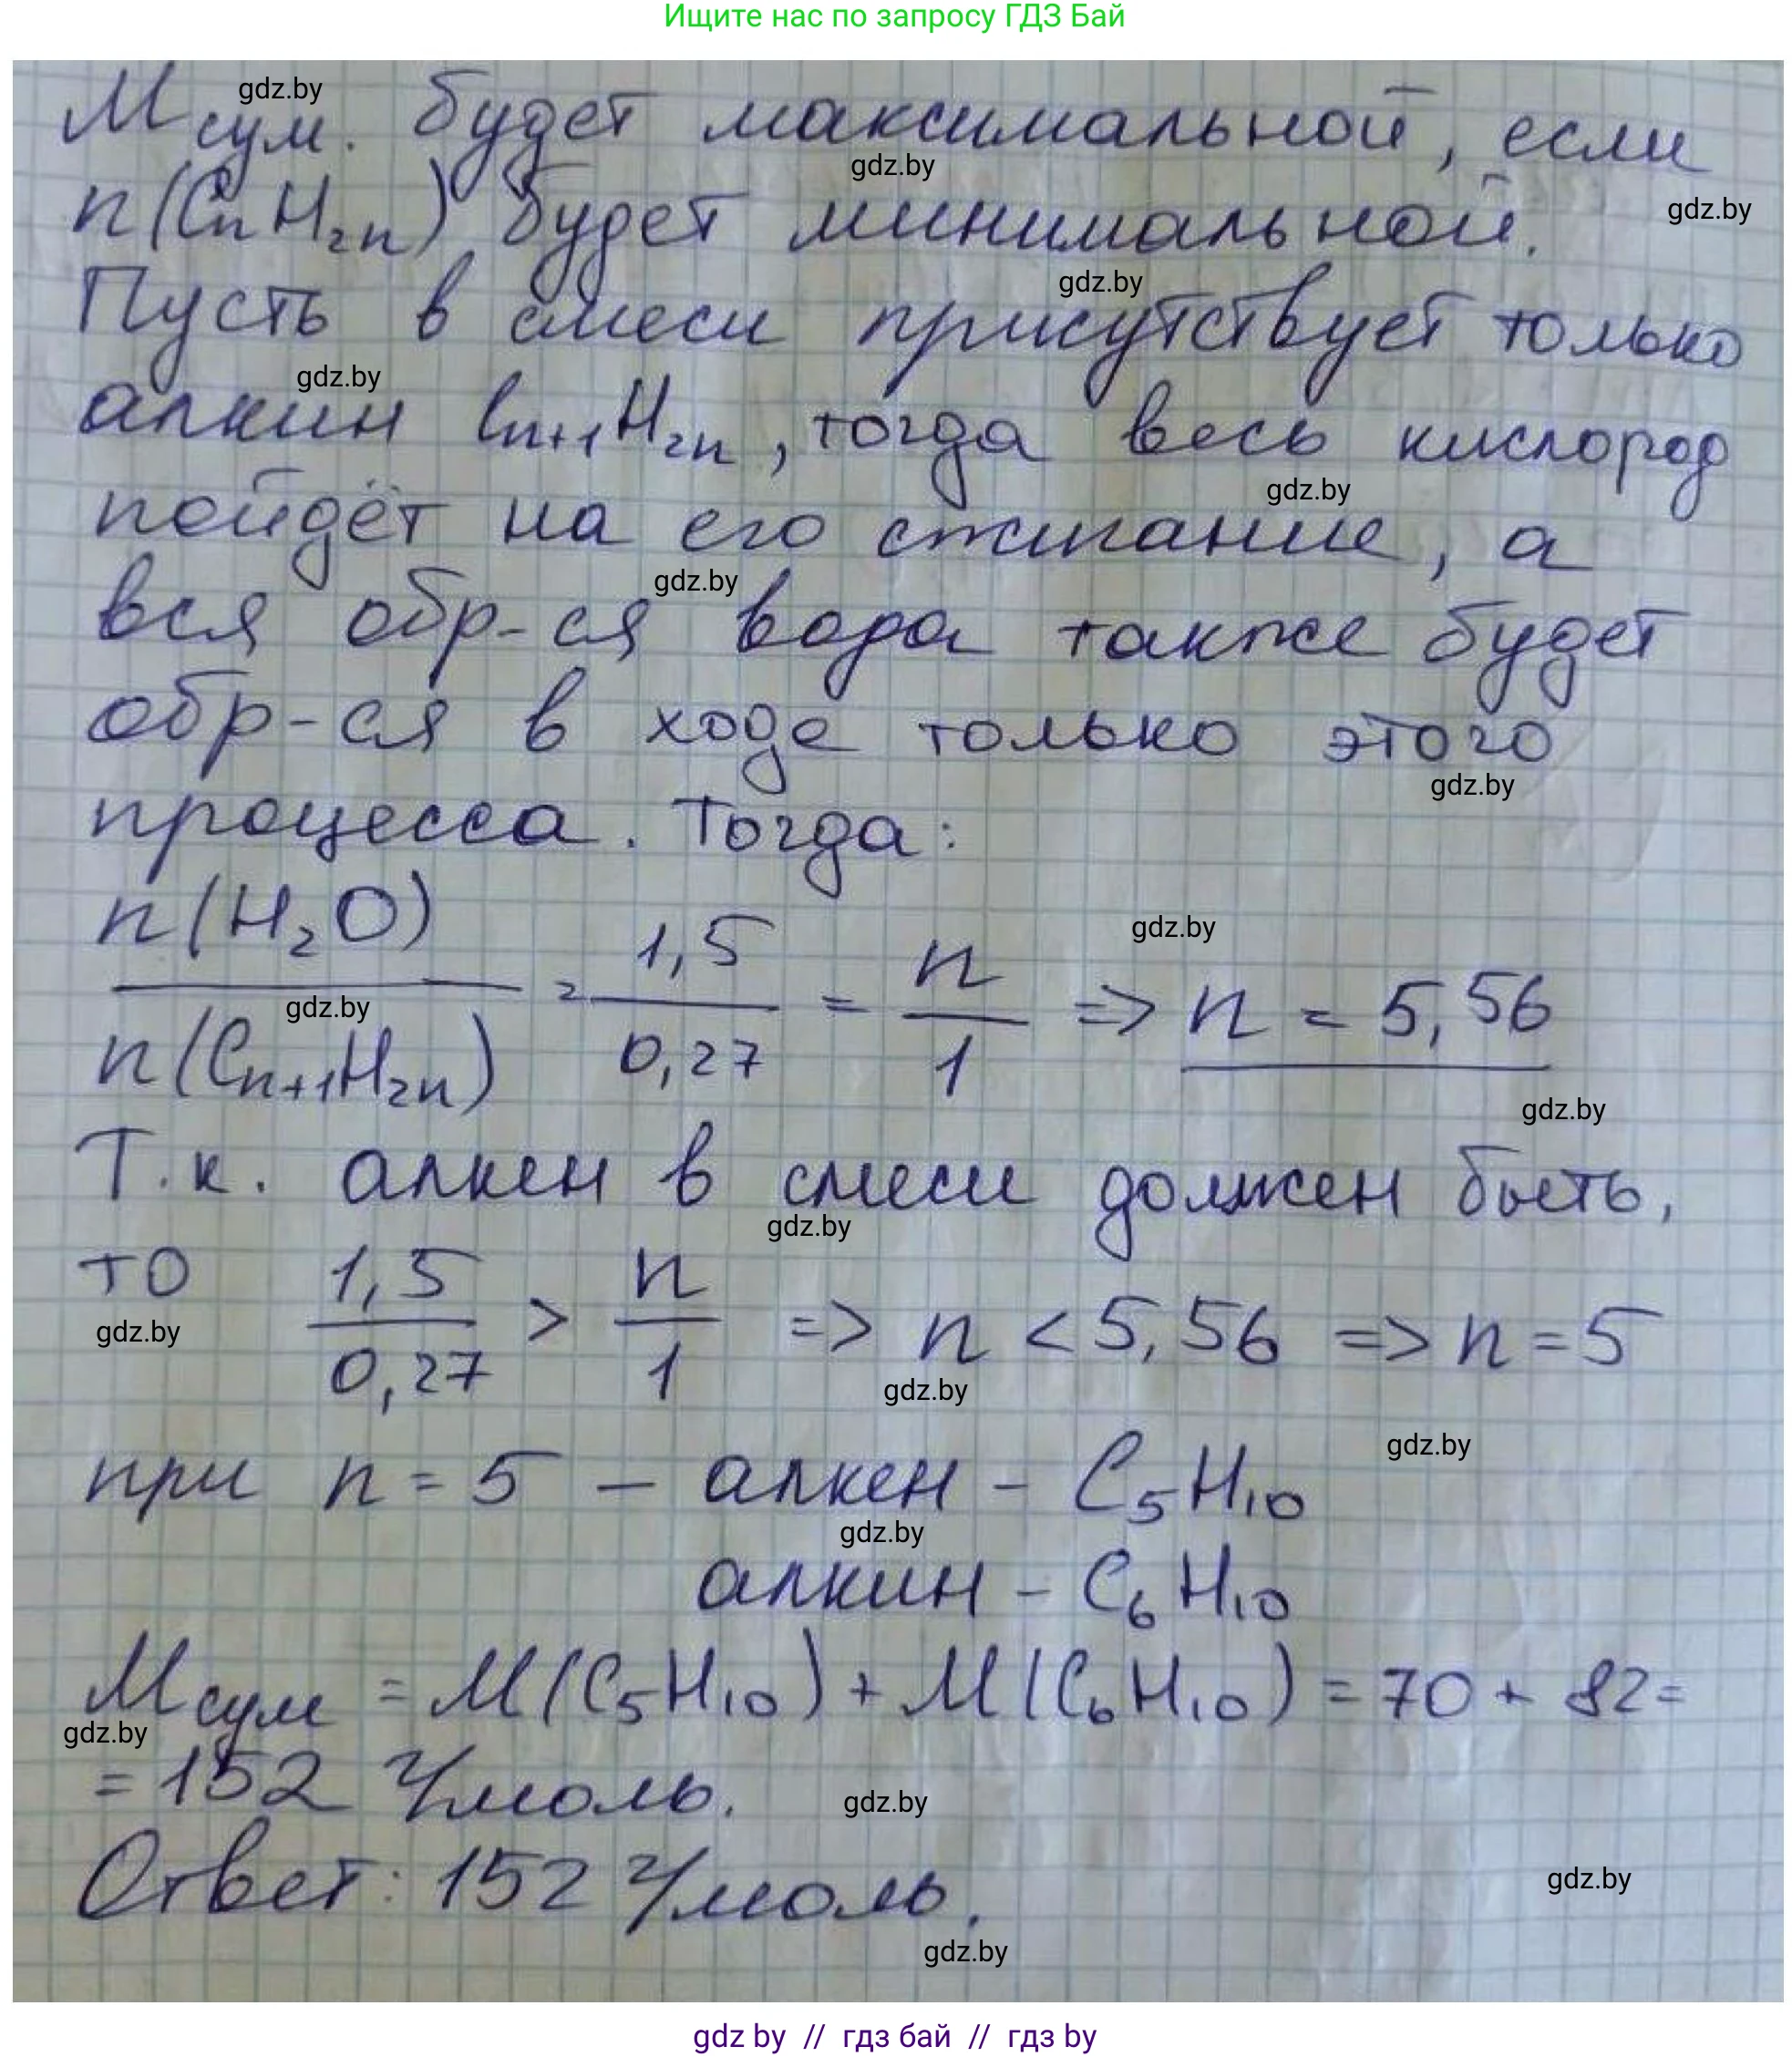 Ищите нас по запросу ГДЗ Бай
gdz.by
Mсум. будет максимальной, если
gdz.by
n(CnH2n) будет минимальной.
gdz.by
gdz.by
Пусть в смеси присутствует только
gdz.by
алкин Cn+1H2n, тогда весь кислород
gdz.by
пойдёт на его сжигание, а
gdz.by
вся обр-ся вода также будет
обр-ся в ходе только этого
gdz.by
процесса. Тогда:
n(H2O) / n(Cn+1H2n) = 1,5 / 0,27 = n / 1 => n = 5,56
gdz.by
gdz.by
gdz.by
Т.к. алкен в смеси должен быть,
gdz.by
то 1,5 / 0,27 > n / 1 => n < 5,56 => n = 5
gdz.by
gdz.by
gdz.by
при n = 5 – алкен – C5H10
gdz.by
алкин – C6H10
Mсум = M(C5H10) + M(C6H10) = 70 + 82 =
gdz.by
= 152 г/моль.
gdz.by
Ответ: 152 г/моль.
gdz.by
gdz.by
gdz by // гдз бай // гдз by